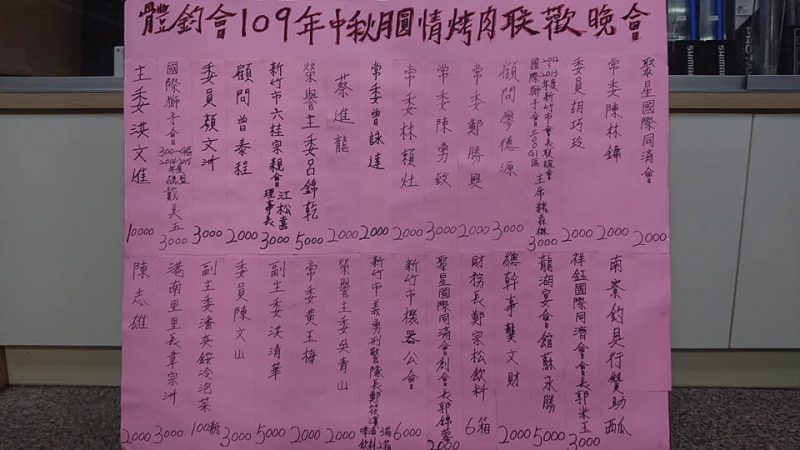 體釣會109年中秋月圓情烤肉联歡晚會
聚星國際同濟會 2000
常委陳林鏽 2000
委員胡巧玲 2000
顧問廖德源 3000
常委鄭勝興 2000
常委陳勇致 3000
常委林楨灶 2000
常委曾詠達 2000
蔡進龍 2000
榮譽主委呂錦乾 5000
新竹市六桂宗親會理事長江松喜 3000
顧問曾泰程 2000
委員顏文洲 3000
國際獅子會300 戴美玉 3000
主委洪文 10000
南寮釣具行贊助西瓜
祥鈺國際同濟會會長郭米玉 3000
龍湖宴會館蘇永勝 5000
總幹事龔文財 2000
財務長鄭宗松飲料 6箱
聚星國際同濟會創會長郭錦 2000
新竹市機器公會 6000
新竹市義勇刑警隊長鄭 啤酒 飲料
榮譽主委吳青山 2000
常委黃玉梅 2000
副主委洪清華 5000
委員陳文山 3000
副主委潘英銨冷泡茶 100瓶
港南里里長韋宗洲 3000
陳志雄 2000
SHIMANO